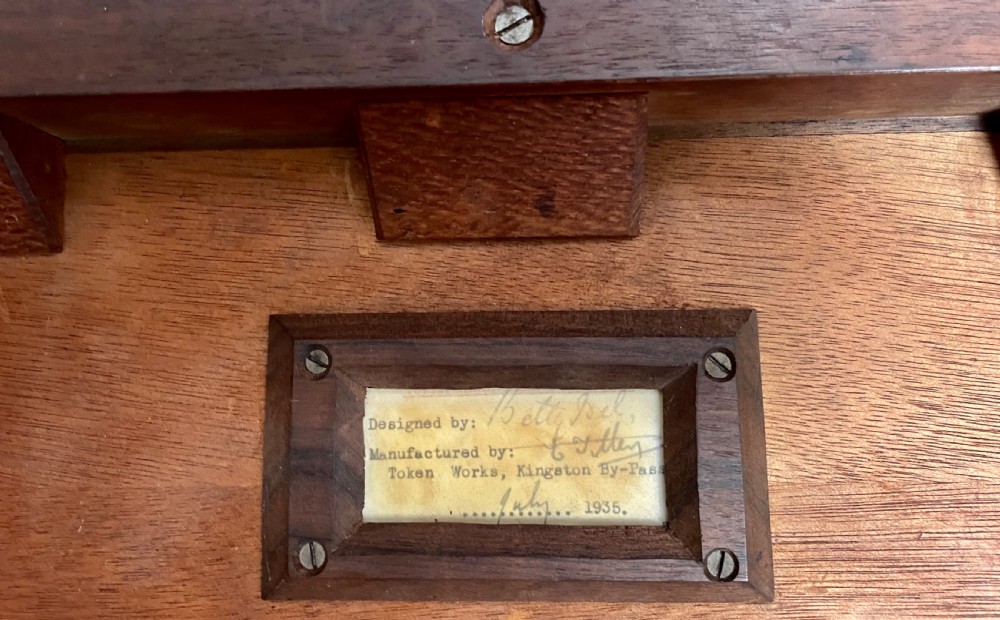 Designed by: Betty Joel,
Manufactured by:
Token Works, Kingston By-Pass
....July.... 1935.